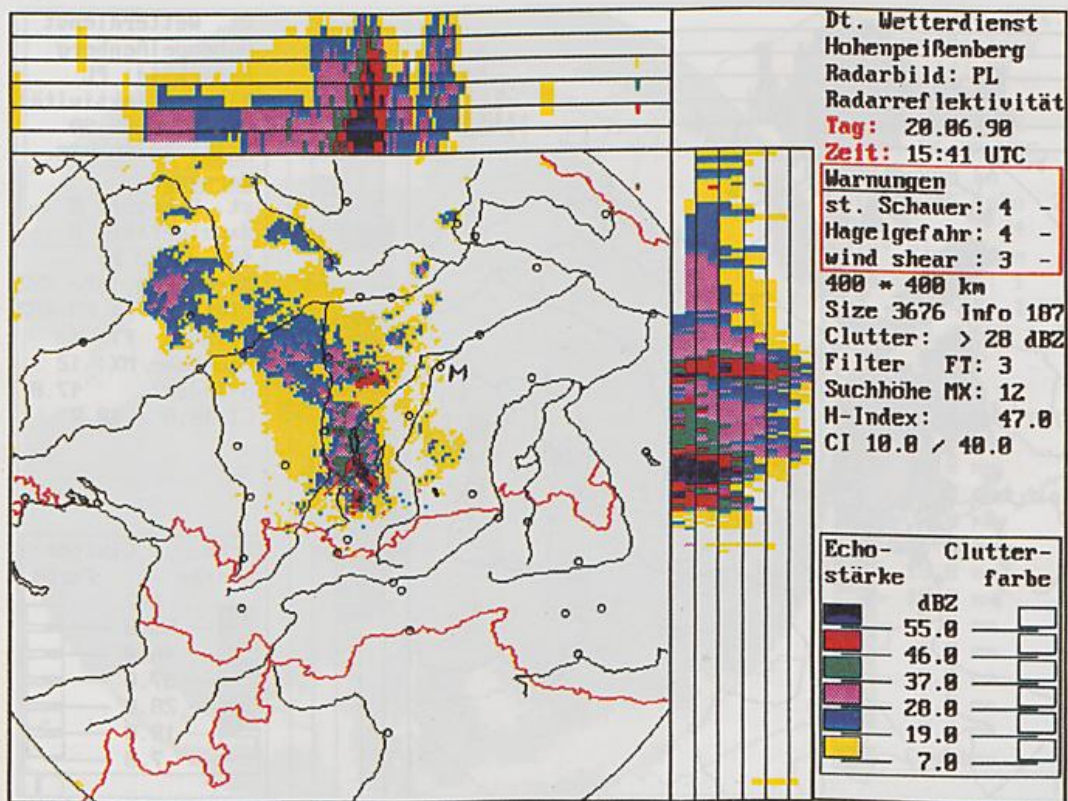 Dt. Wetterdienst
Hohenpeißenberg
Radarbild: PL
Radarreflektivität
Tag: 20.06.90
Zeit: 15:41 UTC
Warnungen
st. Schauer: 4 -
Hagelgefahr: 4 -
wind shear : 3 -
400 * 400 km
Size 3676 Info 187
Clutter: > 28 dBZ
Filter FT: 3
Suchhöhe MX: 12
H-Index: 47.0
CI 10.0 / 40.0
M
Echo- Clutter-
stärke farbe
dBZ
55.0
46.0
37.0
28.0
19.0
7.0